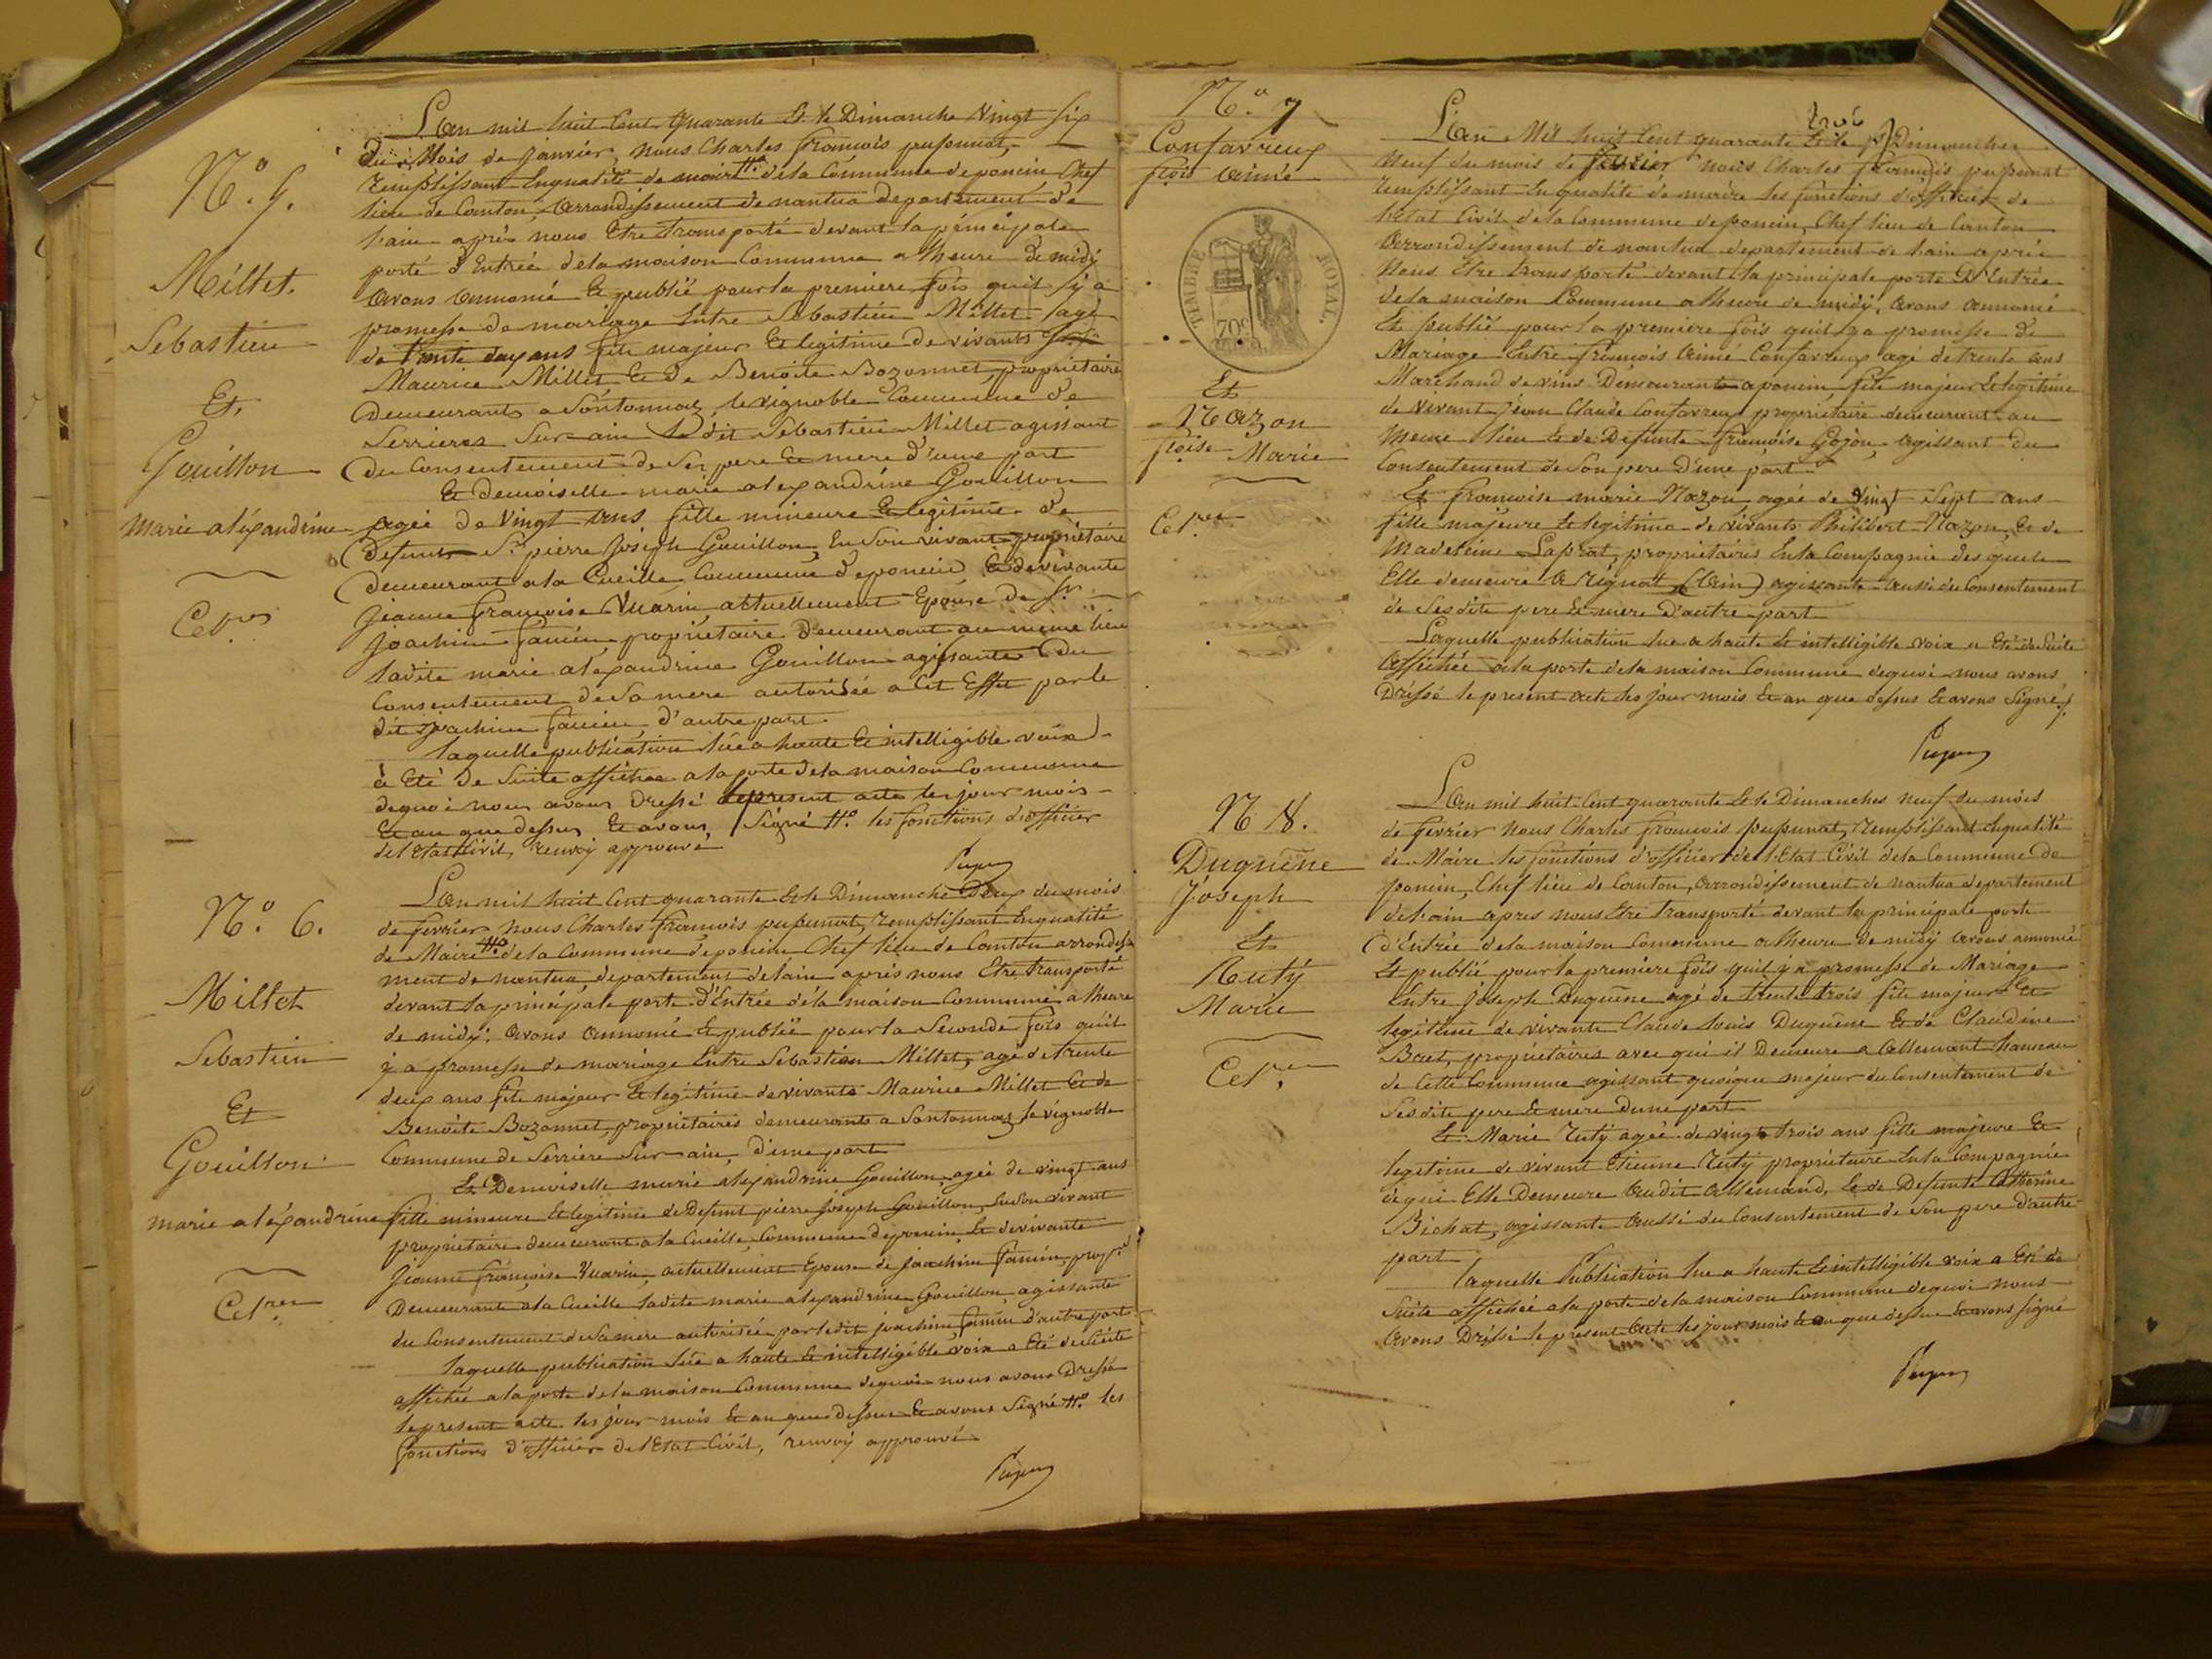 N.º 5.
Millet.
Sebastien
Et
Gouillon
marie aléxandrine
L'an mil huit Cent quarante Et le Dimanche Vingt six
du Mois de Janvier, nous Charles francois pupunat,
remplissant Enqualité de maire #º dela Commune deponcin Chef
lieu de Canton, arrondissement de nantua departement de
lain après nous Etre transporté devant la principale
porte d'Entrée dela maison Commune a lheure de midy
avons annoncé Et publié pour la premiere fois quil y a
promesse de mariage Entre Sebastien Millet agé
de trente deux ans fils majeur Et legitime de vivants
Maurice Millet Et de Benoite Bozonnet, propriétaire
Demeurants a Sontonnaz le vignoble Commune de
Serrieres Sur ain Le dit Sebastien Millet agissant
du Consentement de Ses pere Et mere d'une part
Et demoiselle marie alexandrine Gouillon
agée de Vingt ans fille mineure Et legitime de
Defunt Sr pierre Joseph Gouillon, En Son vivant propriétaire
demeurant a la Cueille Commune deponcin Et de vivante
Jeanne francoise Vuarin attuellement Epouse de Sr
Joachim famin, propriétaire demeurant au même lieu
ladite marie alexandrine Gouillon agissante du
Consentement de Sa mere autorisée a Cet Effet par le
dit Joachim famin, d'autre part.
laquelle publication lue a haute Et intelligible voix
à Eté de Suite affichée a la porte dela maison Commune
dequoi nous avons Dressé le present acte les jour mois
Et an que dessus Et avons Signé #º les fonctions d'officier
del'Etat Civil, renvoy approuvé
N.º 6.
Millet
Sebastien
Et
Gouillon
marie aléxandrine
L'an mil huit Cent quarante Et le Dimanche Deux du mois
de fevrier nous Charles francois pupunat, remplissant Enqualité
de Maire #º dela Commune deponcin Chef lieu de Canton arrondisse
ment de nantua, departement delain après nous Etre transporté
devant la principale porte d'Entrée dela maison Commune a lheure
de midy, avons annoncé Et publié pour la Seconde fois quil
y a promesse de mariage Entre Sebastien Millet, agé de trente
deux ans fils majeur Et legitime de vivants Maurice Millet Et de
Benoite Bozonnet, propriétaires demeurants a Sontonnaz le vignoble
Commune de Serriere Sur ain, d'une part
Et Demoiselle marie alexandrine Gouillon, agée de vingt ans
fille mineure Et legitime de Defunt pierre Joseph Gouillon, En Son vivant
propriétaire demeurant a la Cueille Commune deponcin, Et de vivante
Jeanne françoise Vuarin, actuellement Epouse de Joachim famin, prop.re
Demeurante a la Cueille ladite marie alexandrine Gouillon agissante
du Consentement de Sa mere autorisée par ledit joachim famin d'autre part
laquelle publication lue a haute Et intelligible voix a Eté de Suite
affichée a la porte dela maison Commune dequoi nous avons Dressé
le present acte les jour mois Et an que dessus Et avons Signé #º les
fonctions d'officier del'Etat Civil, renvoy approuvé
N.º 7
Confavreux
fçois aimé
TIMBRE ROYAL.
70c
Et
Nazon
fçoise Marie
L'an Mil huit Cent quarante Et le Dimanche
neuf du mois de fevrier nous Charles francois pupunat
remplissant En qualité de maire les fonctions d'officier de
l'Etat Civil dela Commune deponcin, Chef lieu de Canton
arrondissement de nantua departement de lain après
Nous Etre transporté devant la principale porte D'Entrée
dela maison Commune a lheure de midy, avons annoncé
Et publié pour la premiere fois quil y a promesse de
Mariage Entre francois aimé Confavreux agé de trente ans
Marchand de vins Demeurant a poncin fils majeur Et legitime
de vivant Jean Claude Confavreux propriétaire demeurant au
meme lieu Et de Defunte francoise Gojon, agissant du
Consentement de Son pere D'une part
Et francoise marie Nazon agée de Vingt Sept ans
fille majeure Et legitime de vivants Philibert Nazon, Et de
Madeleine Laprat, propriétaires En la Compagnie desquels
Elle demeure a Rignat (ain) agissante aussi du Consentement
de Sesdits pere Et mere D'autre part
Laquelle publication lue a haute Et intelligible voix a Eté de Suite
affichée a la porte dela maison Commune dequoi nous avons
Dressé le present acte les jour mois Et an que dessus Et avons Signé
N.º 8.
Duguêne
Joseph
Et
Ruty
Marie
L'an mil huit Cent quarante Et le Dimanches neuf du mois
de fevrier nous Charles francois pupunat, remplissant Enqualité
de Maire les fonctions d'officier de l'Etat Civil dela Commune de
poncin, Chef lieu de Canton, arrondissement de nantua departement
delain, apres nous Etre transporté devant la principale porte
d'Entrée dela maison Commune a lheure de midy avons annoncé
Et publié pour la premiere fois quil y a promesse de Mariage
Entre Joseph Duguêne agé de trente trois fils majeur Et
legitime de vivants Claude Louis Duguêne Et de Claudine
propriétaires avec qui il Demeure a allemant hameau
de Cette Commune agissant quoique majeur du Consentement de
Sesdits pere Et mere d'une part
Et Marie Ruty agée de vingt trois ans fille majeure Et
legitime de vivant Etienne Ruty propriétaire En la Compagnie
de qui Elle Demeure audit allemand, Et de Defunte Catherine
Bichat, agissante aussi du Consentement de Son pere d'autre
part
laquelle Publication lue a haute Et intelligible voix a Eté de
Suite affichée a la porte dela maison Commune dequoi nous
avons Dréssé le present acte les jour mois Et an que dessus Et avons signé